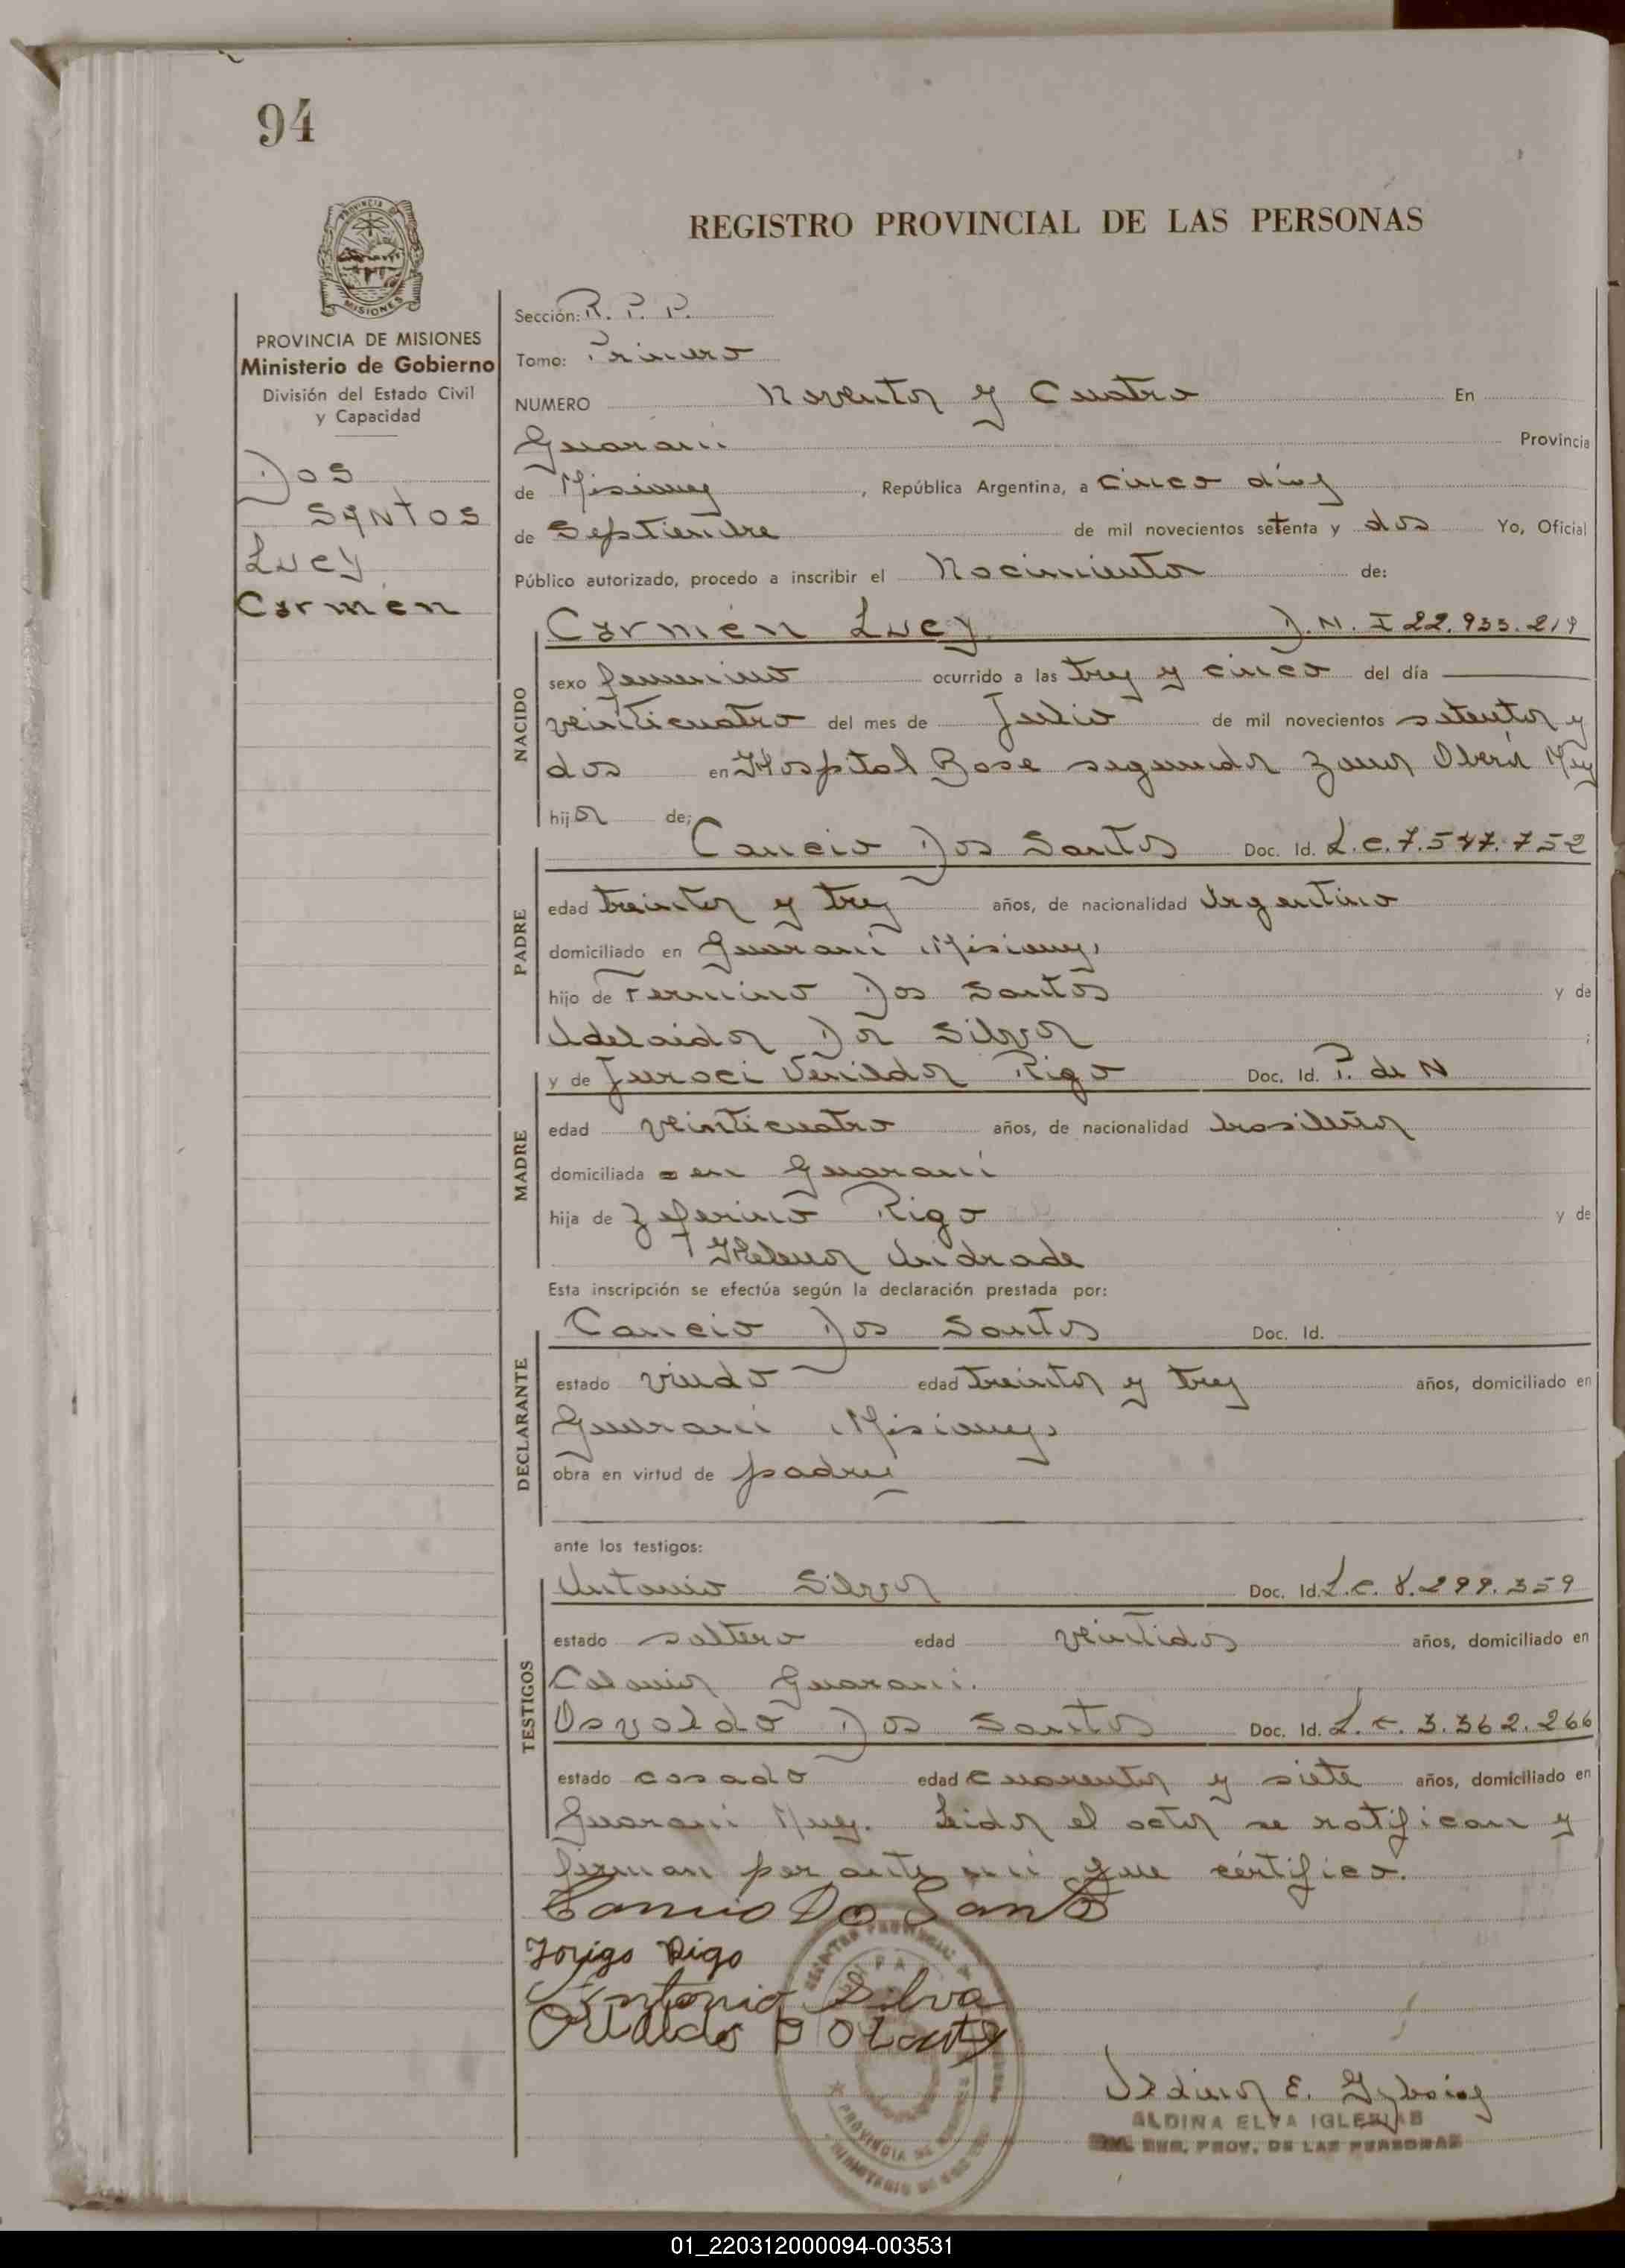 94
REGISTRO PROVINCIAL DE LAS PERSONAS
PROVINCIA DE
MISIONES
PROVINCIA DE MISIONES
Ministerio de Gobierno
División del Estado Civil
y Capacidad
Dos
Santos
Lucy
Carmen
Sección: R. P. P.
Tomo: Primero
NUMERO Noventa y Cuatro En
Guarani Provincia
de Misiones, República Argentina, a cinco días
de Septiembre de mil novecientos setenta y dos Yo, Oficial
Público autorizado, procedo a inscribir el Nacimiento de:
Carmen Lucy D.N.I 22.935.219
NACIDO
sexo femenino ocurrido a las tres y cinco del día
veinticuatro del mes de Julio de mil novecientos setenta y
dos en Hospital Base segunda zona Oberá
hija de;
Cancio Dos Santos Doc. Id. L.E. 7.547.752
PADRE
edad treinta y tres años, de nacionalidad Argentino
domiciliado en Guarani Misiones
hijo de Fermino Dos Santos y de
Adelaida Da Silva ;
y de Juraci Rigo Doc. Id. P. de N
MADRE
edad veinticuatro años, de nacionalidad brasileña
domiciliada en Guarani
hija de Zeferino Rigo y de
Helena Andrade
Esta inscripción se efectúa según la declaración prestada por:
Cancio Dos Santos Doc. Id.
DECLARANTE
estado viudo edad treinta y tres años, domiciliado en
Guarani Misiones
obra en virtud de padre
ante los testigos:
Antonio Silva Doc. Id. L.E. 8.299.359
TESTIGOS
estado soltero edad veintidos años, domiciliado en
Colonia Guarani.
Osvaldo Dos Santos Doc. Id. L.E. 3.362.266
estado casado edad cuarenta y siete años, domiciliado en
Guarani Mnes. Leida el acta se ratifican y
firman por ante mi que certifico.
Cancio Do Santo
Rigo
Antonio Silva
Aldina E. Iglesias
ALDINA ELVA IGLESIAS
REG. PROV. DE LAS PERSONAS
01_220312000094-003531